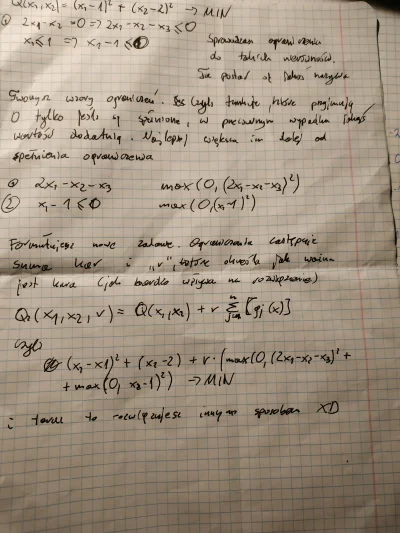 Q(x₁,x₂) = (x₁-1)² + (x₂-2)² → MIN
① 2x₁-x₂=0 => 2x₁-x₂-x₃≤0
x₁≤1 => x₁-1≤0
Sprowadzam ograniczenia
do takich nierówności.
Ta postać się jakoś nazywa
Tworzysz wzory ograniczeń. Są czyli funkcje, które przyjmują
0 tylko jeśli są spełnione, w przeciwnym wypadku jakąś
wartość dodatnią. Najlepiej większą im dalej od
spełnienia ograniczenia
① 2x₁-x₂-x₃ max(0,(2x₁-x₂-x₃)²)
② x₁-1≤0 max(0,(x₁-1)²)
Formułujesz nowe zadanie. Ograniczenia zastępuje
suma kar i „r", które określa jak ważna
jest kara (jak bardzo wpływa na rozwiązanie)
Q₂(x₁,x₂,r) = Q(x₁,x₂) + r Σ [φj(x)]
czyli
(x₁-x1)² + (x₂-2) + r·[max(0,(2x₁-x₂-x₃)² +
+ max(0, x₃-1)²) → MIN
i teraz to rozwiązujesz innym sposobem XD